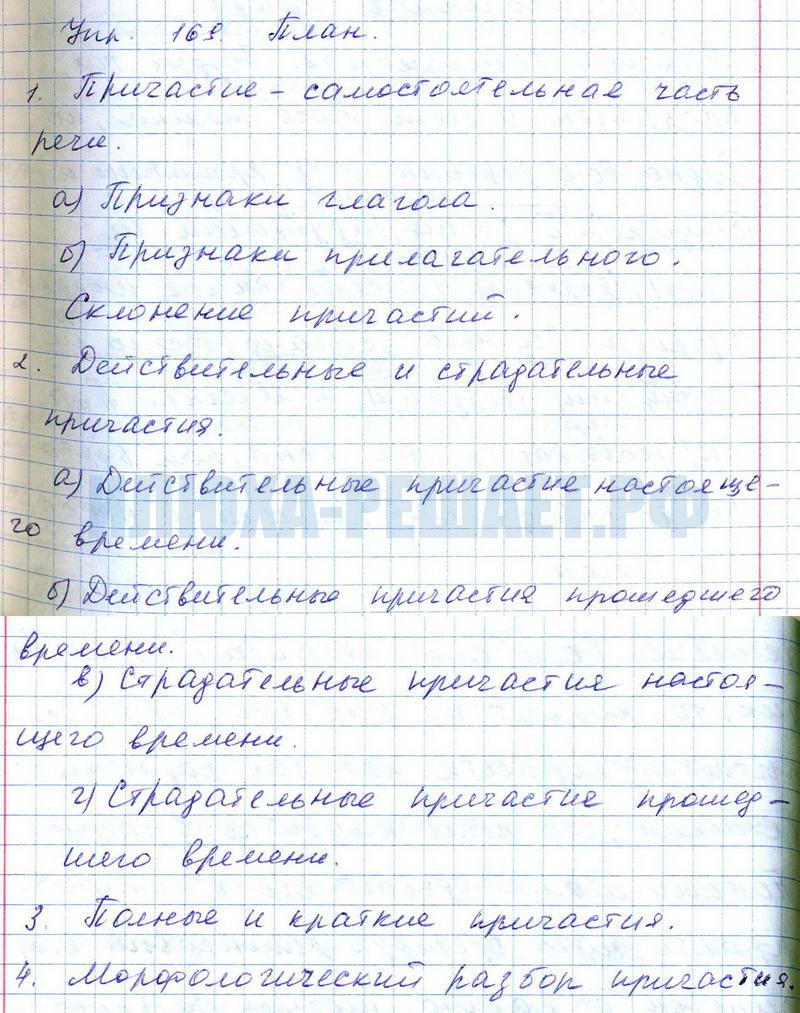 Упр. 169. План.
1. Причастие - самостоятельная часть
речи.
а) Признаки глагола.
б) Признаки прилагательного.
Склонение причастий.
2. Действительные и страдательные
причастия.
а) Действительные причастие настояще-
го времени.
ЭЛЮХА-РЕШАЕТ.РФ
б) Действительные причастия прошедшего
времени.
в) Страдательные причастия настоя-
щего времени.
г) Страдательные причастие прошед-
шего времени.
3. Полные и краткие причастия.
4. Морфологический разбор причастия.